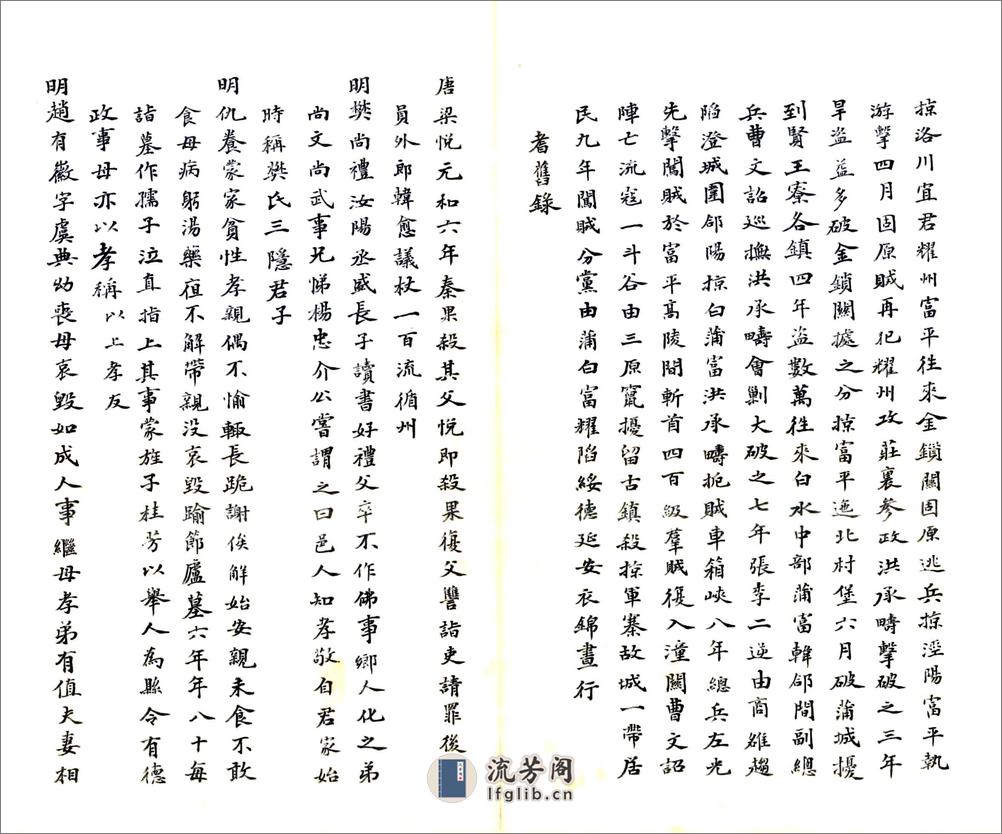 掠洛川宜君耀州富平往來金鎖關固原逃兵掠涇陽富平執
游擊四月固原賊再犯耀州攻莊裏參政洪承疇擊破之三年
旱盜益多破金鎖關據之分掠富平迤北村堡六月破蒲城擾
到賢王寮各鎮四年盜數萬往來白水中部蒲富韓郃間副總
兵曹文詔巡撫洪承疇會剿大破之七年張李二逆由商雒趨
陷澄城圍郃陽掠白蒲富洪承疇扼賊車箱峽八年總兵左光
先擊闖賊於富平高陵間斬首四百級羣賊復入潼關曹文詔
陣亡流寇一斗谷由三原竄擾留古鎮殺掠軍寨故城一帶居
民九年闖賊分黨由蒲白富耀陷綏德延安衣錦晝行
耆舊錄
唐梁悅元和六年秦果殺其父悅即殺果復父讐詣吏請罪後
員外郎韓愈議杖一百流循州
明樊尚禮汝陽丞盛長子讀書好禮父卒不作佛事鄉人化之弟
尚文尚武事兄悌楊忠介公嘗謂之曰邑人知孝敬自君家始
時稱樊氏三隱君子
明仇養蒙家貧性孝親偶不愉輒長跪謝俟解始安親未食不敢
食母病躬湯藥夜不解帶親没哀毀踰節廬墓六年年八十每
詣墓作孺子泣直指上其事蒙旌子桂芳以舉人為縣令有德
政事母亦以孝稱以上孝友
明趙有徽字虞典幼喪母哀毀如成人事繼母孝弟有值夫妻相
流芳阁
lfglib.cn